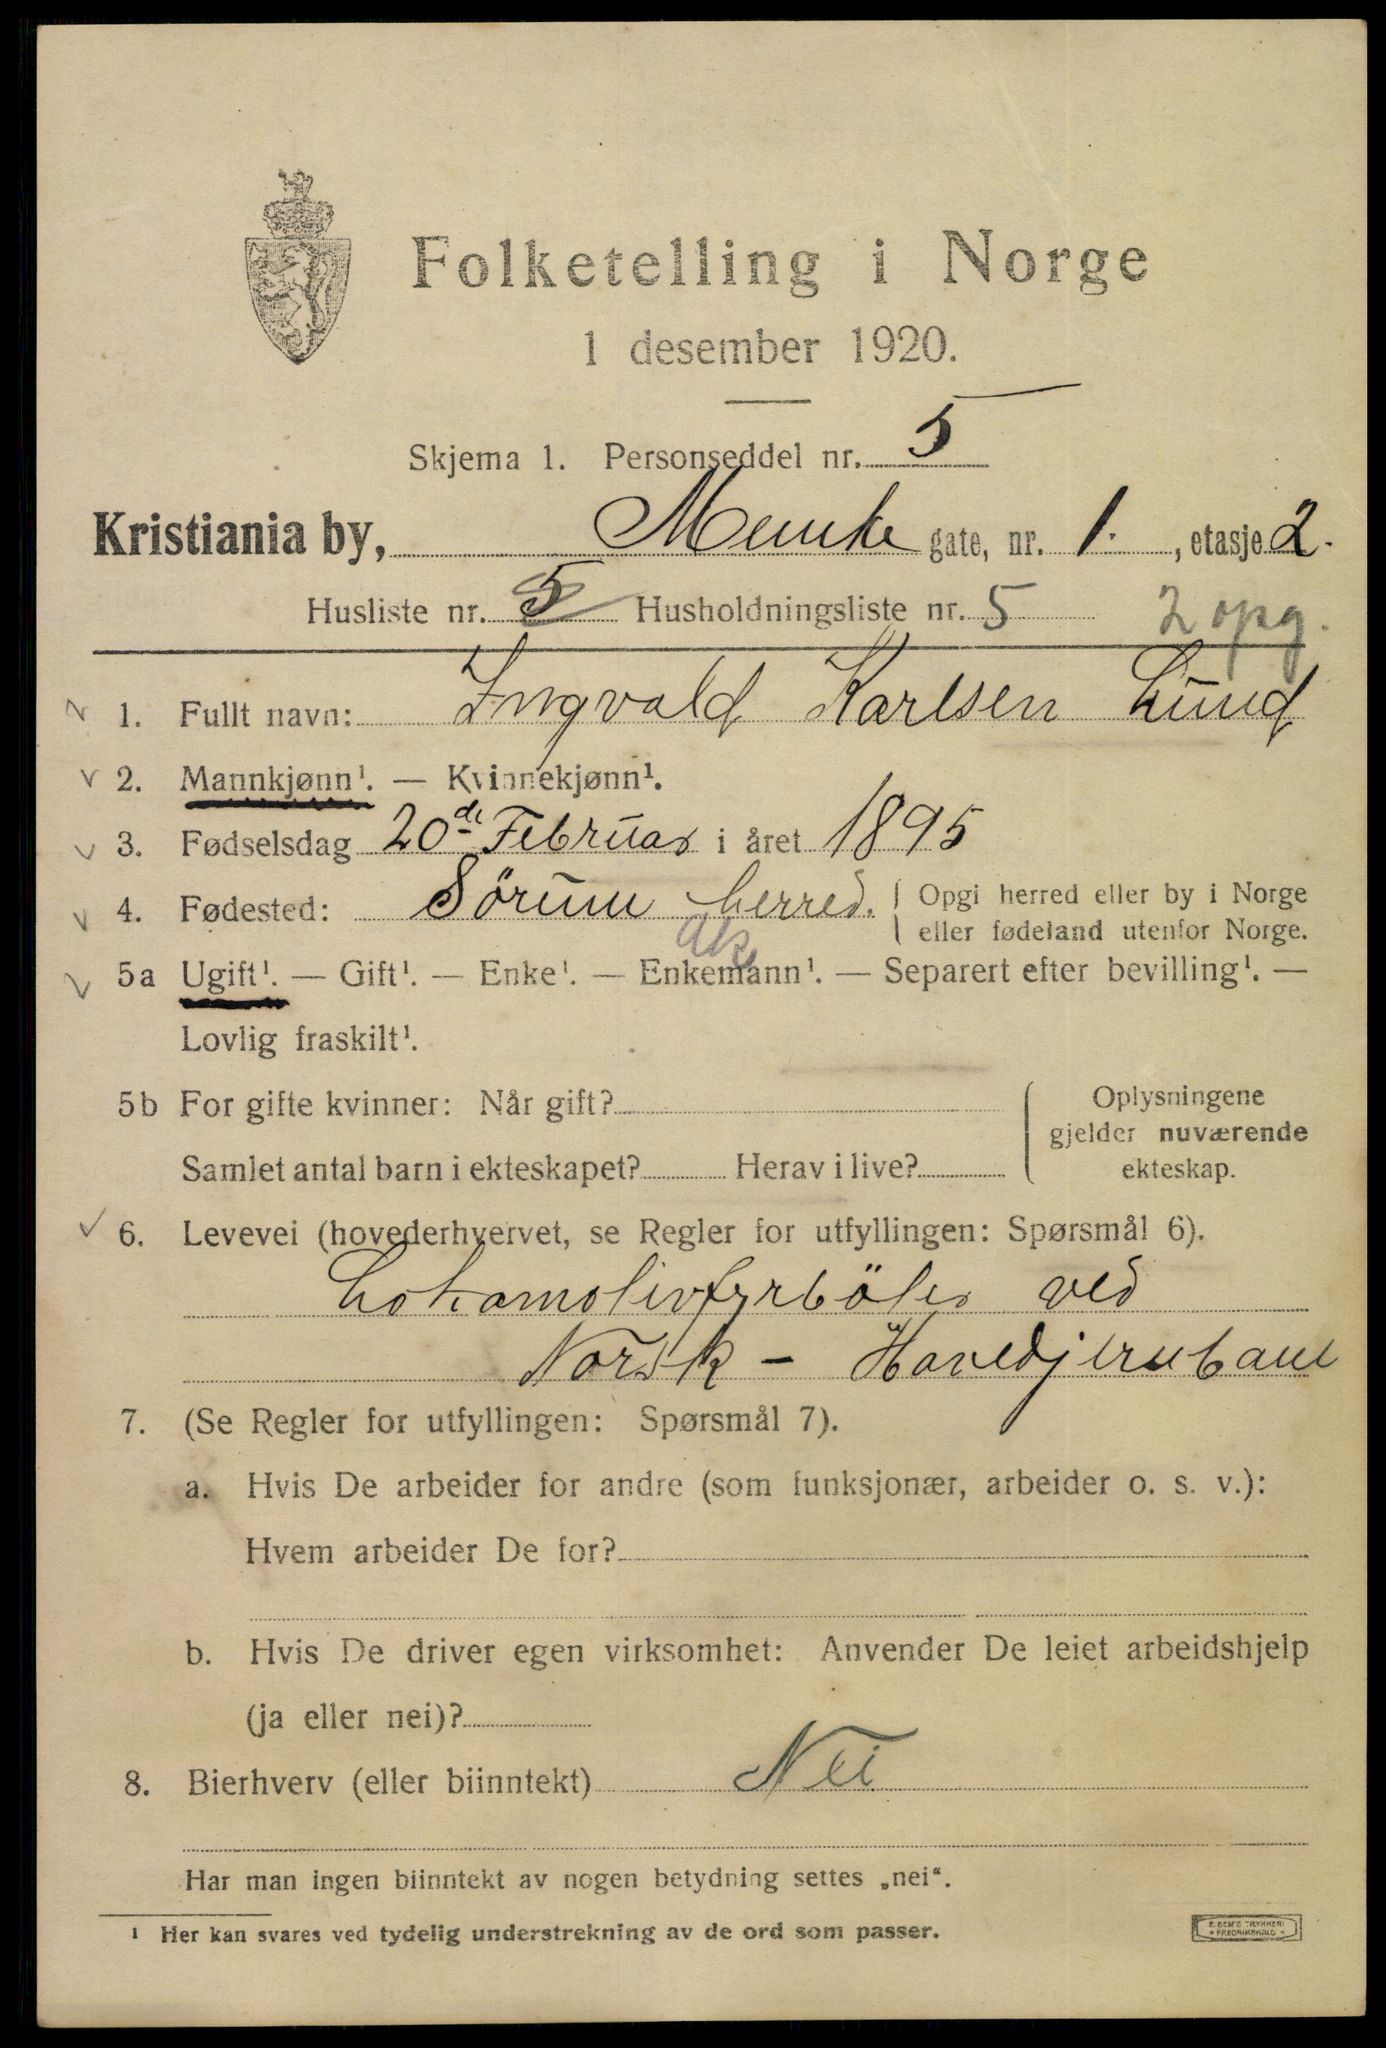 Folketelling i Norge
1 desember 1920.
Skjema 1. Personseddel nr. 5
Kristiania by, Munke gate, nr. 1. , etasje 2.
Husliste nr. 5 Husholdningsliste nr. 5 2 opg.
1. Fullt navn: Ingvald Karlsen Lund
2. Mannkjønn¹. — Kvinnekjønn¹.
3. Fødselsdag 20de Februar i året 1895
4. Fødested: Sörum herred. Opgi herred eller by i Norge
eller fødeland utenfor Norge.
Ak.
5a Ugift¹. — Gift¹. — Enke¹. — Enkemann¹. — Separert efter bevilling¹. —
Lovlig fraskilt¹.
5b For gifte kvinner: Når gift?
Samlet antal barn i ekteskapet? Herav i live?
Oplysningene
gjelder nuværende
ekteskap.
6. Levevei (hovederhvervet, se Regler for utfyllingen: Spørsmål 6).
Lokomotivfyrböter ved
Norsk - Hovedjernbane
7. (Se Regler for utfyllingen: Spørsmål 7).
a. Hvis De arbeider for andre (som funksjonær, arbeider o. s. v.):
Hvem arbeider De for?
b. Hvis De driver egen virksomhet: Anvender De leiet arbeidshjelp
(ja eller nei)?
8. Bierhverv (eller biinntekt) Nei
Har man ingen biinntekt av nogen betydning settes „nei“.
¹ Her kan svares ved tydelig understrekning av de ord som passer.
E. SEM'S TRYKKERI
FREDRIKSHALD